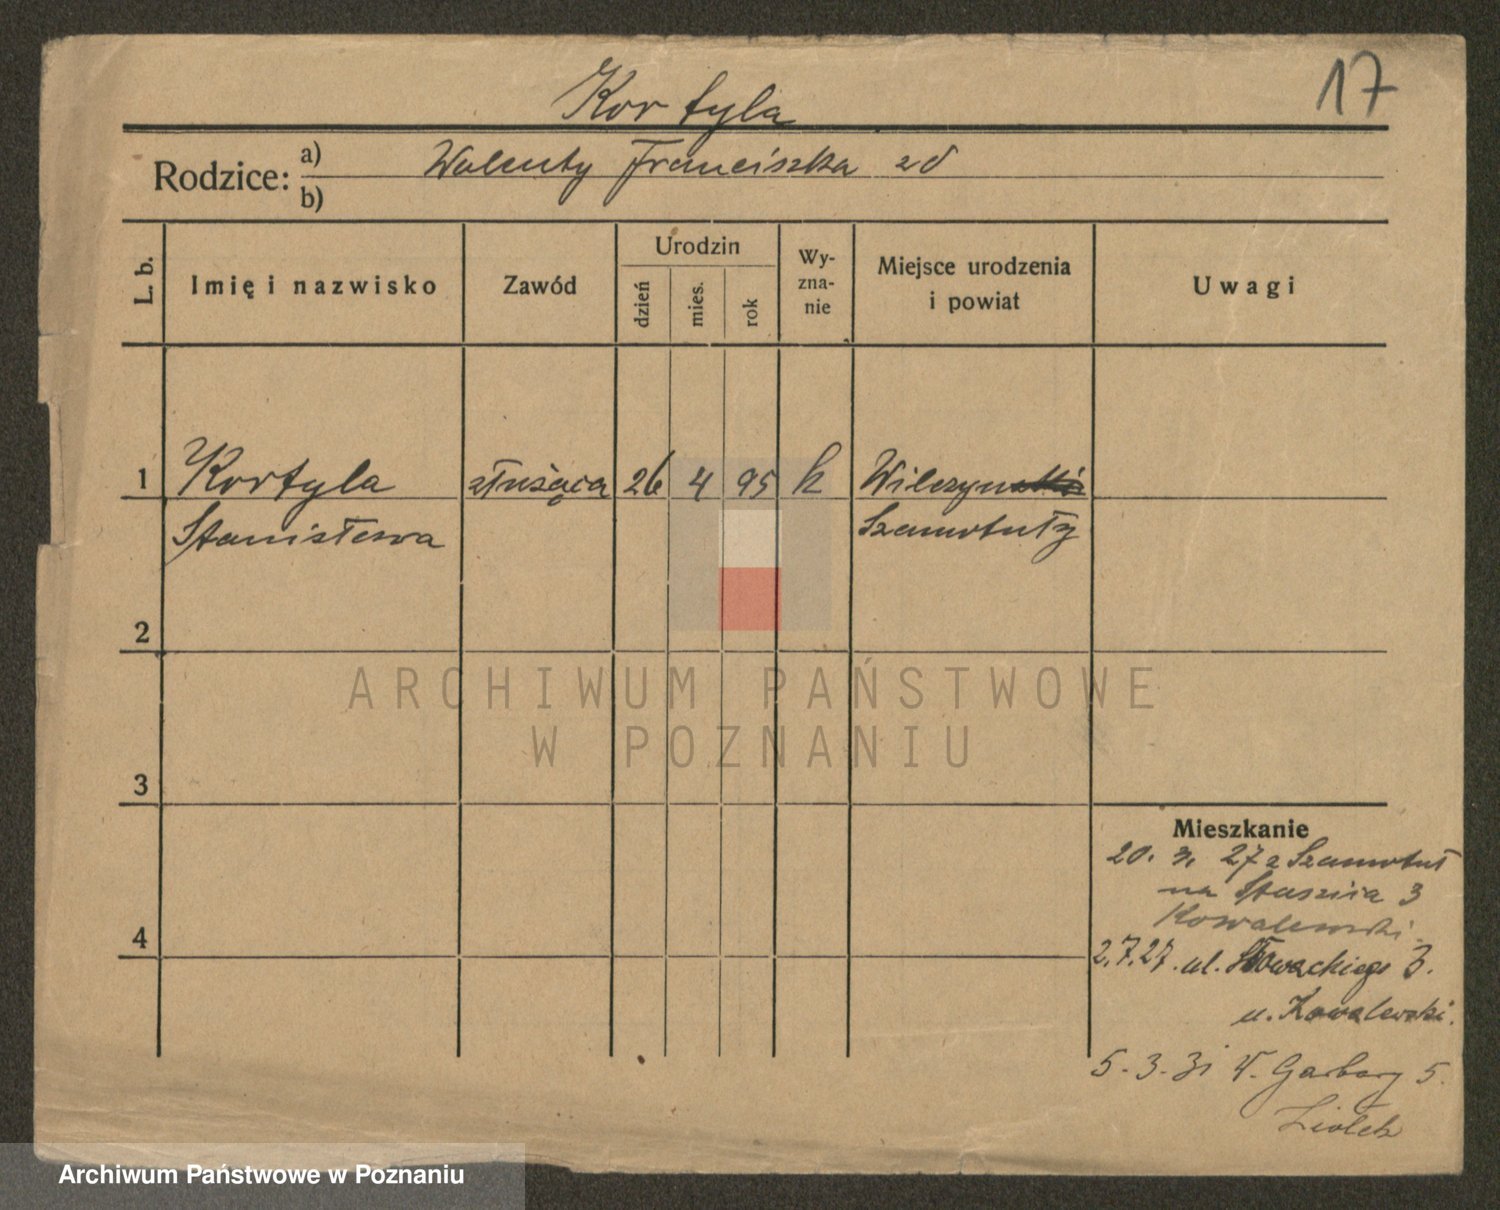 17
Kortyla
Rodzice: a) Walenty Franciszka zd
b)
L. b.
Imię i nazwisko
Zawód
Urodzin
dzień
mies.
rok
Wy-
zna-
nie
Miejsce urodzenia
i powiat
Uwagi
1 Kortyla służąca 26 4 95 k
Stanisława Szamotuły
2
ARCHIWUM PAŃSTWOWE
W POZNANIU
3
Mieszkanie
20. 3. 27 z Szamotuł
na Staszica 3
Kowalewski.
4
2.7.27. ul. Słowackiego 3.
u. Kowalewski.
5.3.31 W. Garbary 5.
Ziołek
Archiwum Państwowe w Poznaniu